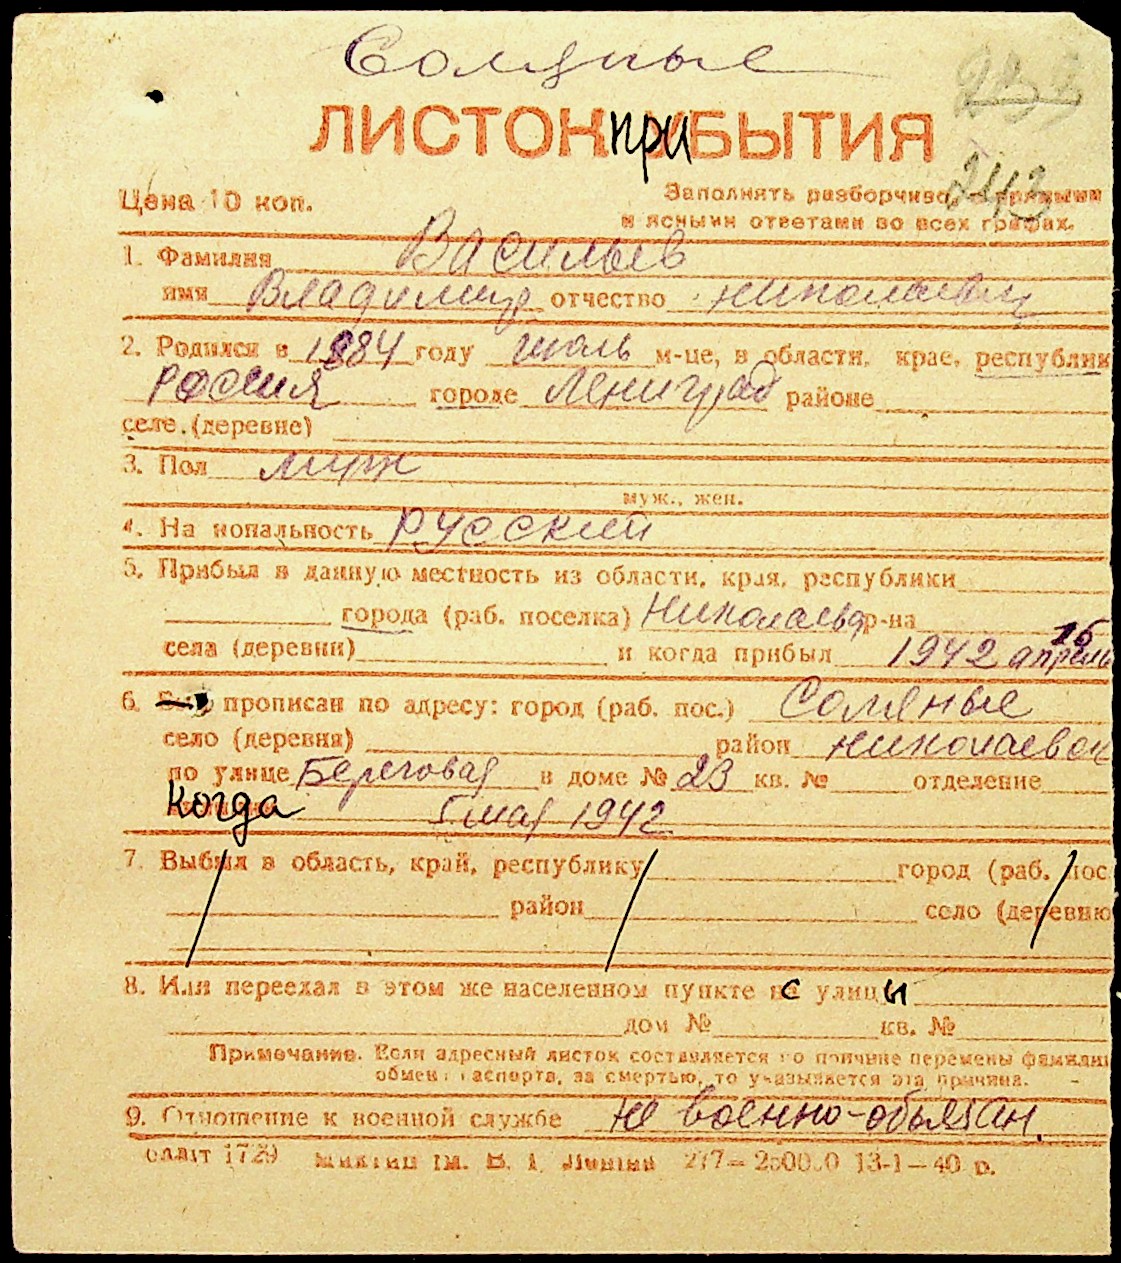 Соляные
233
ЛИСТОК ПРИБЫТИЯ
243
Цена 10 коп.
Заполнять разборчиво, с прямыми
и ясными ответами во всех графах.
1. Фамилия Васильев
имя Владимир отчество николаевич
2. Родился в 1884 году июль м-це, в области, крае, республик
Россия городе Ленинград районе
селе (деревне)
3. Пол муж
муж., жен.
4. Национальность русский
5. Прибыл в данную местность из области, края, республики
города (раб. поселка) Николаева р-на
села (деревни) и когда прибыл 1942 апрель 16
6. прописан по адресу: город (раб. пос.) Соляные
село (деревня) район николаевск
по улице Береговая в доме № 23 кв. № отделение
когда 5 мая 1942
7. Выбыл в область, край, республику город (раб. пос
район село (деревню
8. Или переехал в этом же населенном пункте с улицы
дом № кв. №
Примечание. Если адресный листок составляется по причине перемены фамилии
обмен паспорта, за смертью, то указывается эта причина.
9. Отношение к военной службе не военно-обязан.
1729 Ім. В. І. Леніна 277— 13-1—40 р.